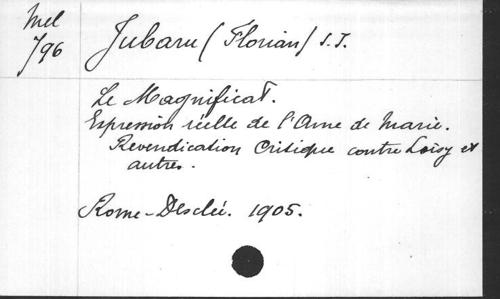 Mel
796
Jubaru (Florian) S.J.
Le Magnificat.
Expression réelle de l'Ame de Marie.
Revendication Critique contre Loisy et
autres.
Rome-Desclée. 1905.